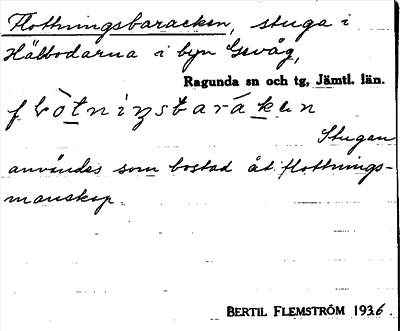 Flottningsbaracken, stuga i
Hällbodarna i byn Gevåg,
Ragunda sn och tg, Jämtl. län.
Stugan
användes som bostad åt flottnings-
manskap.
BERTIL FLEMSTRÖM 1936.